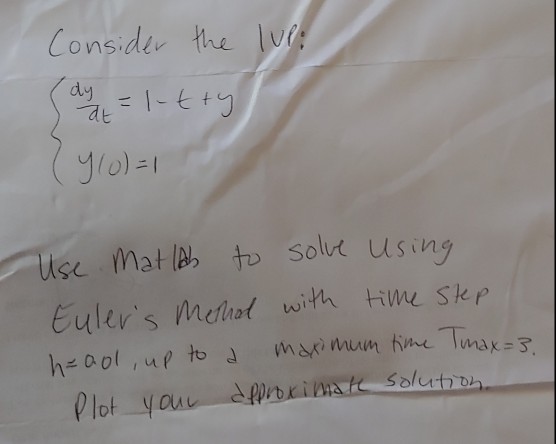 Consider the IVP:
dy/dt = 1-t+y
y(0)=1
Use Matlab to solve using
Euler's Method with time step
h=0.01, up to a maximum time Tmax=3.
Plot your approximate solution.